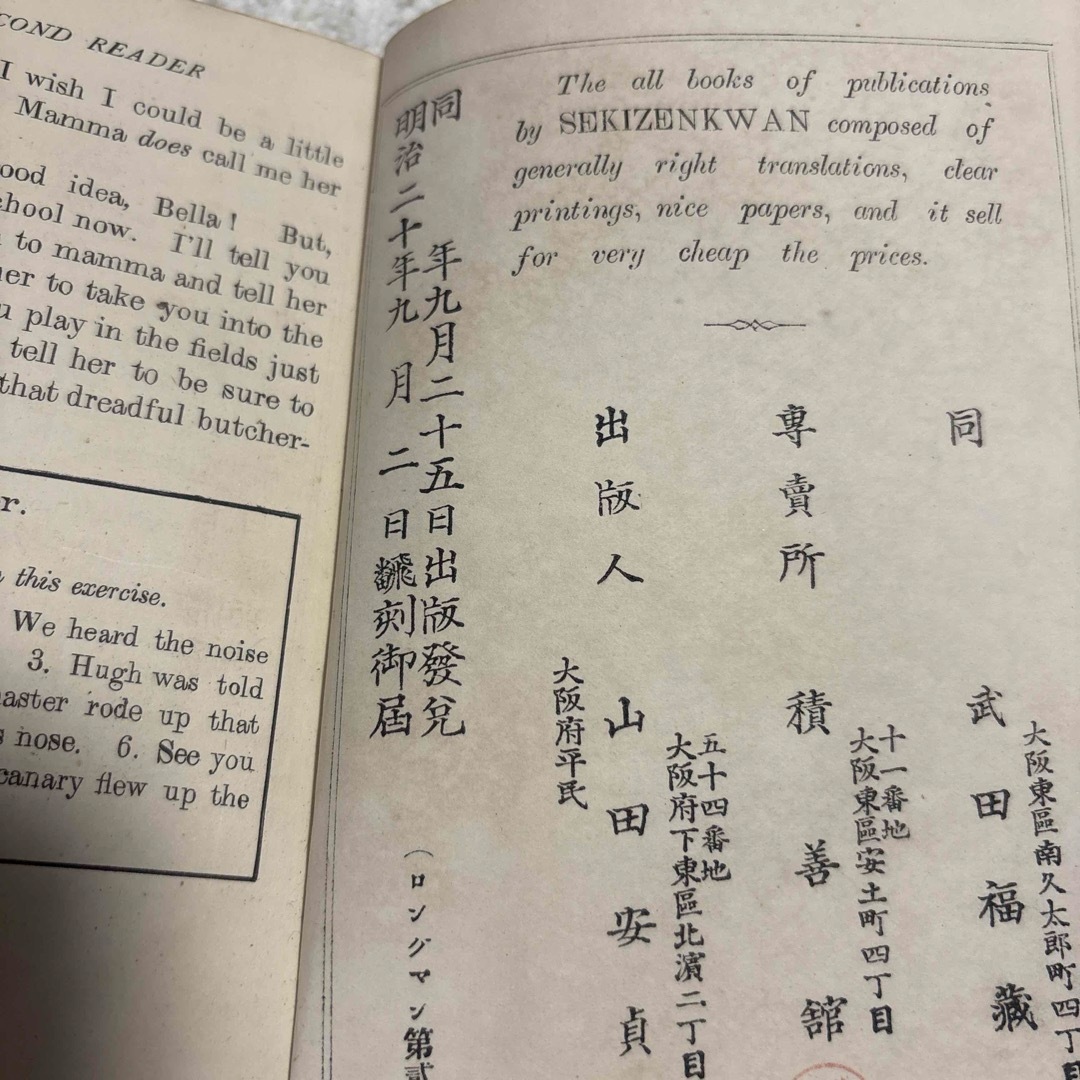 COND READER
I wish I could be a little
Mamma does call me her
ood idea, Bella! But,
chool now. I'll tell you
to mamma and tell her
her to take you into the
u play in the fields just
tell her to be sure to
that dreadful butcher-
r.
this exercise.
We heard the noise
3. Hugh was told
master rode up that
s nose. 6. See you
canary flew up the
The all books of publications
by SEKIZENKWAN composed of
generally right translations, clear
printings, nice papers, and it sell
for very cheap the prices.
大阪東區南久太郎町四丁目
同 武田福藏
十一番地
大阪東區安土町四丁目
專賣所 積善舘
五十四番地
大阪府下東區北濱二丁目
出版人 山田安貞
大阪府平民
同 年九月二十五日出版發兌
明治二十年九月二日飜刻御届
(ロングマン第貳